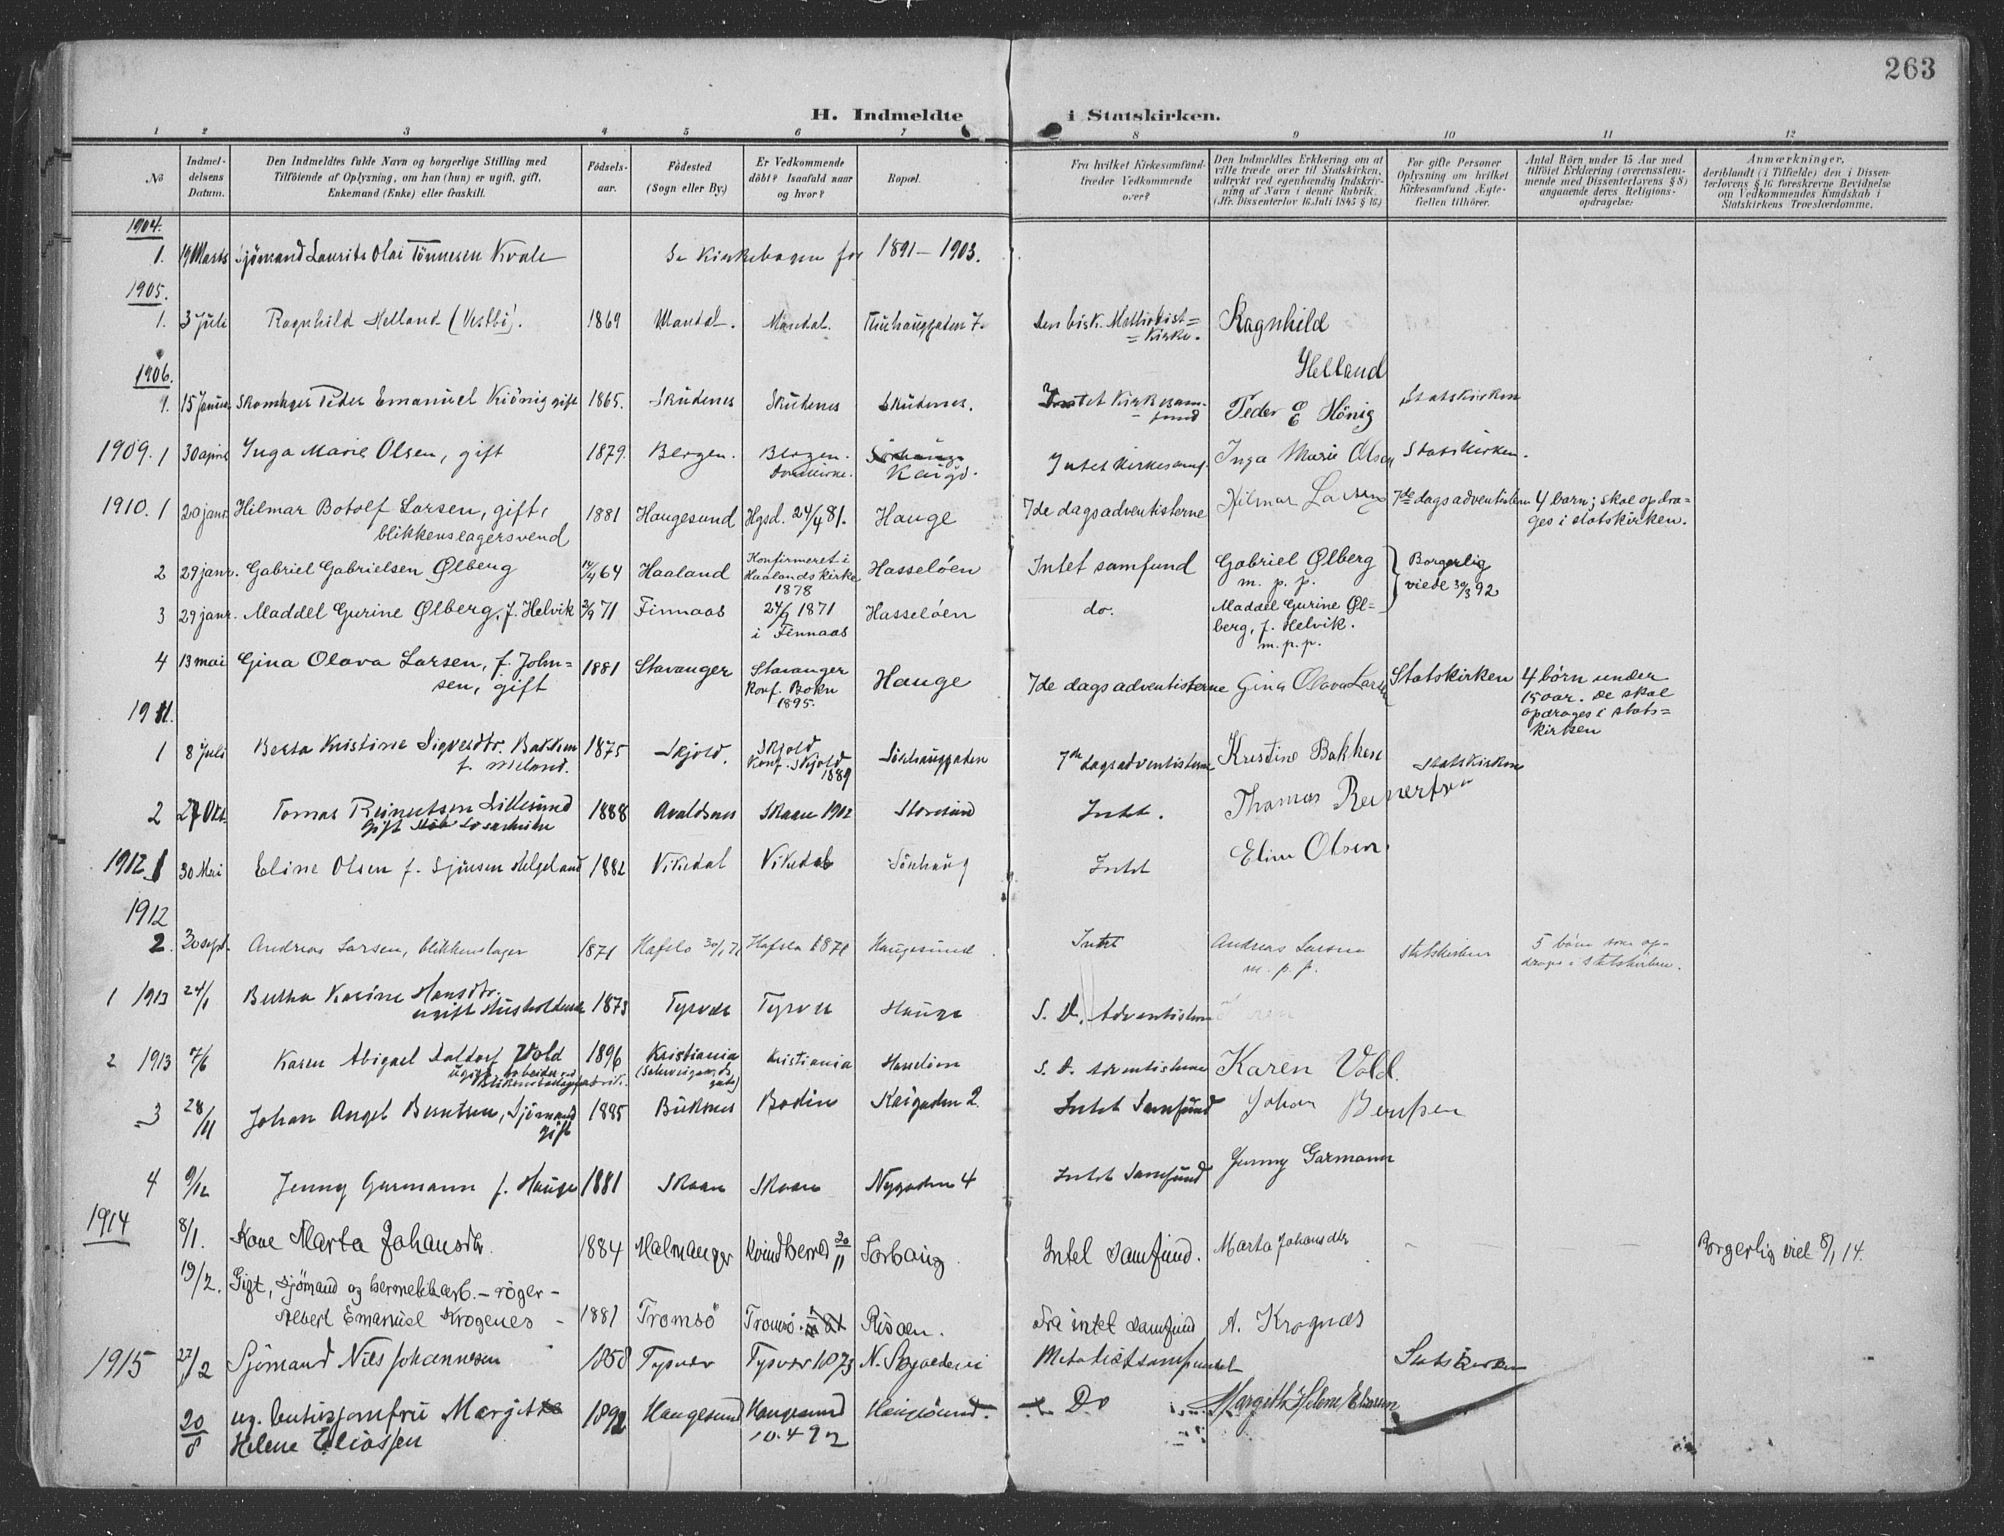 263
H. Indmeldte i Statskirken.
1 2 3 4 5 6 7 8 9 10 11 12
No
Indmel-
delsens
Datum.
Den Indmeldtes fulde Navn og borgerlige Stilling med
Tilföiende af Oplysning, om han (hun) er ugift, gift,
Enkemand (Enke) eller fraskilt.
Födsels-
aar.
Födested
(Sogn eller By.)
Er Vedkommende
döbt? Isaafald naar
og hvor?
Bopæl.
Fra hvilket Kirkesamfund
træder Vedkommende
over?
Den Indmeldtes Erklæring om at
ville træde over til Statskirken,
udtrykt ved egenhændig Indskriv-
ning af Navn i denne Rubrik.
(Jfr. Dissenterlov 16 Juli 1845 § 16.)
For gifte Personer
Oplysning om hvilket
Kirkesamfund Ægte-
fællen tilhörer.
Antal Börn under 15 Aar med
tilföiet Erklæring (overensstem-
mende med Dissenterlovens § 8)
angaaende deres Religions-
opdragelse:
Anmærkninger,
deriblandt (i Tilfælde) den i Dissen-
terlovens § 16 foreskrevne Bevidnelse
om Vedkommendes Kundskab i
Statskirkens Troeslærdomme.
1904.
1. 19 Marts Sjömand Laurits Olai Tönnesen Kvale Se Kirkebogen for 1891–1903.
1905.
1. 3 Juli Ragnhild Helland (Vestbö). 1869 Mandal. Mandal. Den bisk. Methodist= Ragnhild
=Kirke. Helland
1906.
1. 15 Januar Skomager Peder Emanuel Kiönig gift 1865. Skudenes Skudenes Skudenes. Intet Kirkesam- Peder E Hönig Statskirken
fund
1909. 1 30 april Inga Marie Olsen, gift 1879. Bergen. Bergen. Intet Kirkesamf. Inga Marie Olsen Statskirken.
Domkirke. Kaigd.
1910. 1 20 janr. Hilmar Botolf Larsen, gift, 1881 Haugesund Hgsd. 24/4 81. Hauge 7de dags adventisterne Hilmar Larsen 7de dags adventisterne 4 barn; skal opdra=
blikkenslagersvend ges i statskirken.
2 29 janr. Gabriel Gabrielsen Ølberg 14/4 64 Haaland Konfirmeret i Hasseløen Intet samfund Gabriel Ølberg Borgerlig
Haalands kirke m. p. p. viede 30/3 92
1878
3 29 janr. Maddel Gurine Ølberg, f. Helvik 2/9 71 Finnaas 24/9 1871 Hasseløen do. Maddel Gurine Øl=
i Finnaas berg, f. Helvik.
m. p. p.
4 13 mai Gina Olava Larsen, f. John= 1881 Stavanger Stavanger Hauge 7de dags adventisterne Gina Olava Larsen Statskirken 4 børn under
sen, gift Konf. Bokn 15 aar. De skal
1895. opdrages i stats=
kirken
1911.
1 8 Juli Berta Kristine Sigvesdtr. Bakken 1875 Skjold. Skjold Sörhauggaden 7de dagsadventisterne Kristine Bakken Statskirken
f. Meland. Konf. Skjold
1889
2 27 Okt. Tomas Lillesund 1888 Avaldsnes Skaare 1902 Storesund Intet. Thomas Reinertsen
gift
1912 1 30 Mai Eline Olsen f. Helgeland 1882 Vikedal Vikedal Sörhaug Intet Eline Olsen.
1912
2. 30 sept. Andreas Larsen, blikkenslager 1871 Hafslo 30/1 71 Hafslo 1871 Haugesund Intet Andreas Larsen Statskirken 5 børn som op-
m. p. p. drages i statskirken.
1 1913 24/1 Bertha Karine Hansdtr. 1873 Tysvær Tysvær Hauge S. D. Adventisterne
ugift Husholderske
2 1913 7/6 Karen Abigael Vold 1896 Kristiania Kristiania Hasselöen S. D. Adventisterne Karen Vold.
3 28/11 Johan Angel Berntsen, Sjömand 1885 Buknes Bodin Kaigaden 2. Intet Samfund Johan Berntsen
gift
4 9/12 Jenny Garmann f. Hauge 1881 Skaare Skaare Nygaden 4 Intet Samfund Jenny Garmann
1914 8/1. Kone Marta Johansdtr. 1884 Malmanger Kvindherred 20/11 Sørhaug. Intet samfund. Marta Johansdtr – – Borgerlig viet 8/1 14.
19/2. Gift, sjømand og hermetikkarb. – røger –
Albert Emanuel Krogenes – 1881 Tromsö Tromsö. Risøen. Fra intet samfund A. Krognæs
1915 27/2 Sjømand Nils Johannesen 1858 Tysvær Tysvær 1873 Metodistsamfundet Statskirken
20/8 ug. butikjomfru Margit 1892 Haugesund Haugesund Haugesund. Do Margith Helene Eliassen
Helene Eliassen 10.4 92